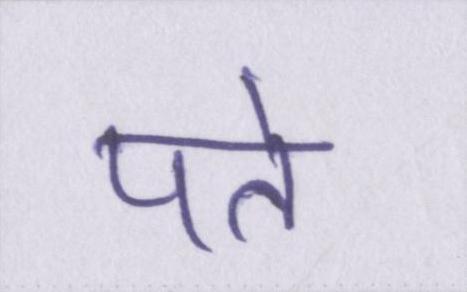 पते